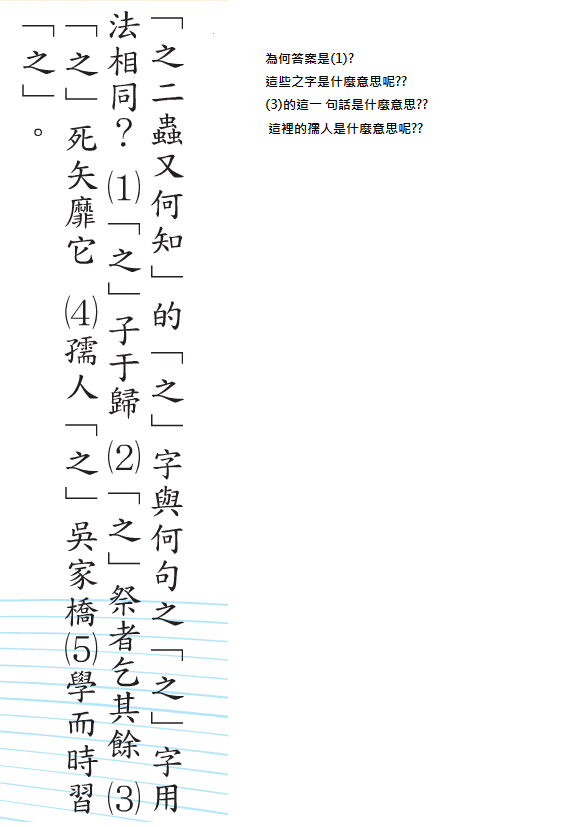 「之二蟲又何知」的「之」字與何句之「之」字用
法相同？⑴「之」子于歸 ⑵「之」祭者乞其餘 ⑶
「之」死矢靡它 ⑷孺人「之」吳家橋⑸學而時習
「之」。
為何答案是(1)?
這些之字是什麼意思呢??
(3)的這一 句話是什麼意思??
這裡的孺人是什麼意思呢??